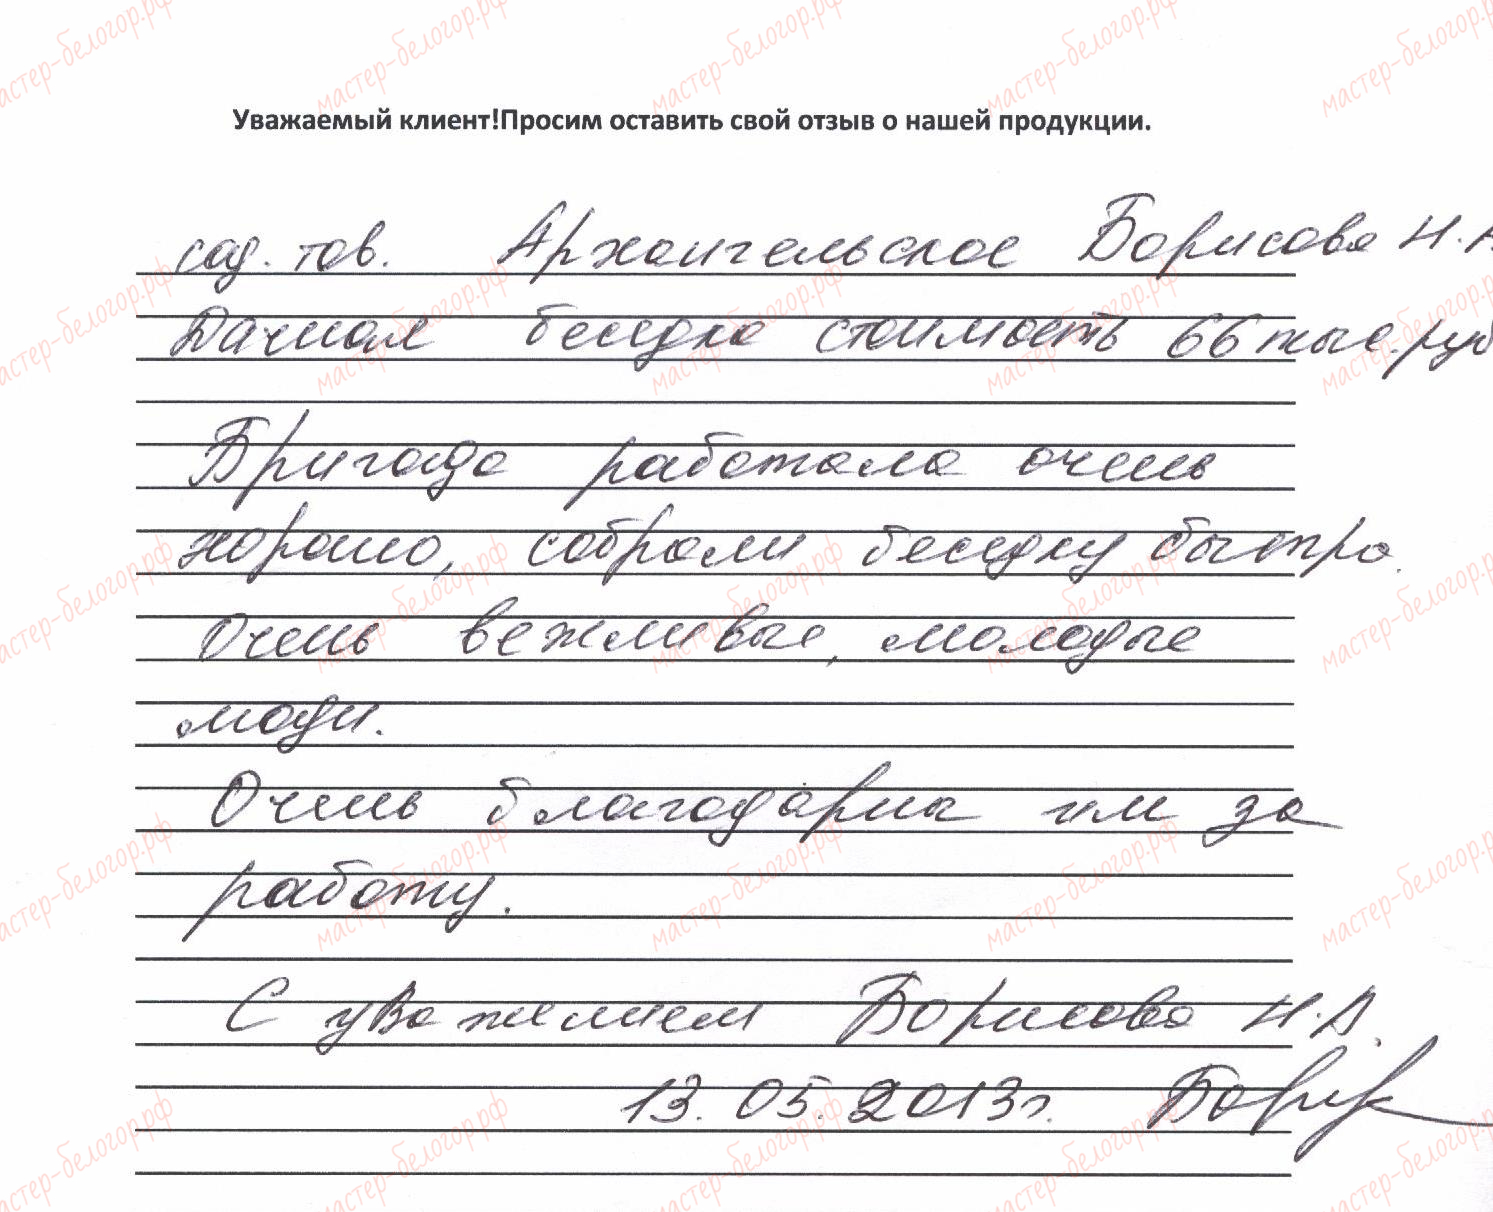 Уважаемый клиент!Просим оставить свой отзыв о нашей продукции.
сад. тов. Архангельское Борисова Н.А
Дачная беседка стоимость 66 тыс. руб
Бригада работала очень
хорошо, собрали беседку быстро.
Очень вежливые, молодые
люди.
Очень благодарна им за
работу.
С уважением Борисова Н.А.
13.05.2013г.
мастер-белогор.рф